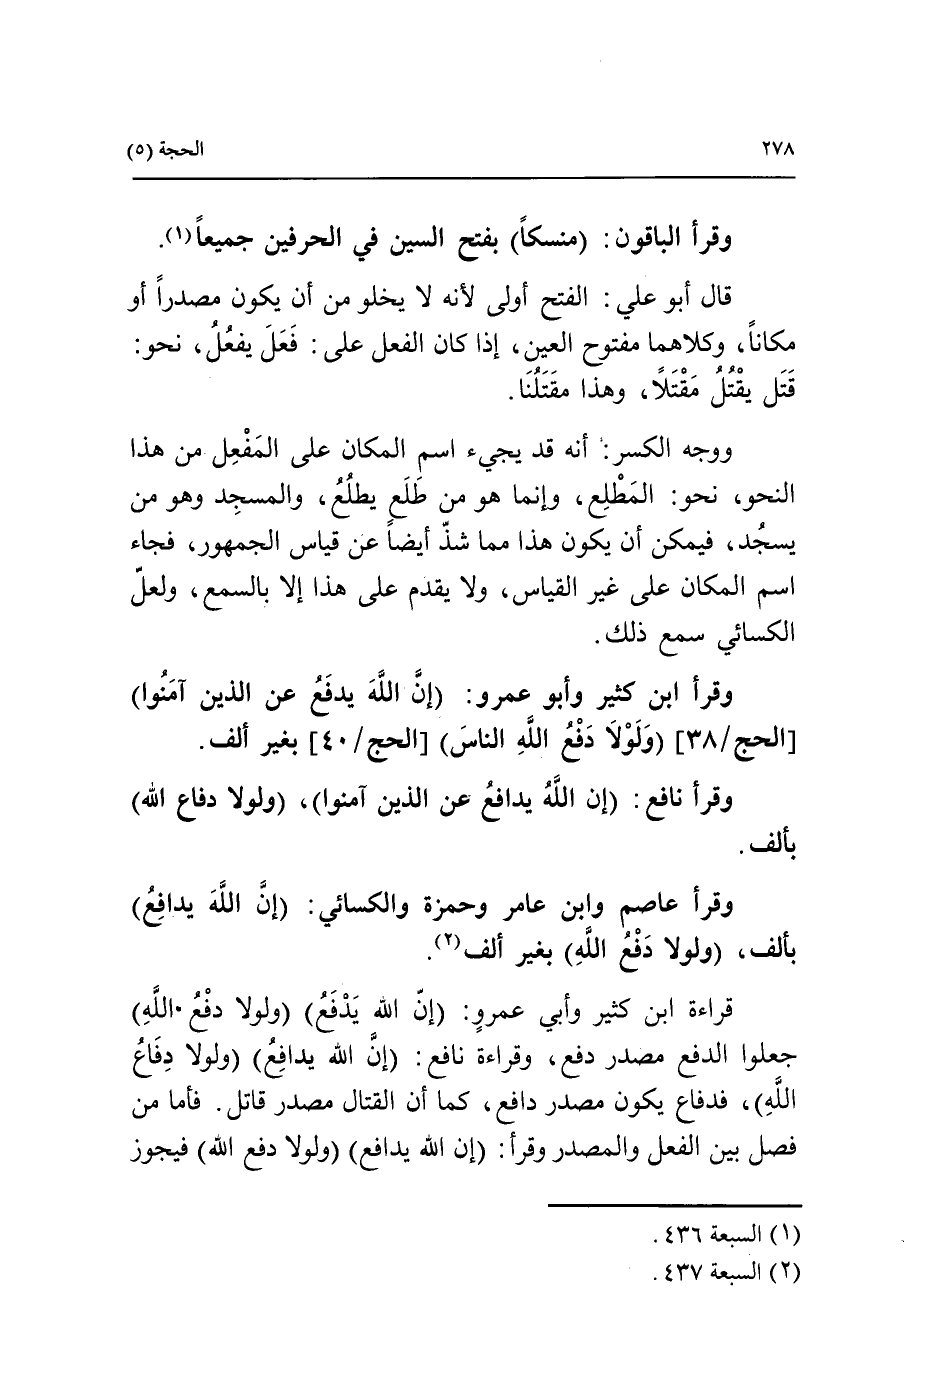 ٢٧٨
الحجة (٥)
وقرأ الباقون: (منسكاً) بفتح السين في الحرفين جميعاً(١).
قال أبو علي: الفتح أولى لأنه لا يخلو من أن يكون مصدراً أو
مكاناً، وكلاهما مفتوح العين، إذا كان الفعل على: فَعَلَ يفعُلُ، نحو:
قَتَل يقْتُلُ مَقْتَلًا، وهذا مقَتَلُنَا.
ووجه الكسر: أنه قد يجيء اسم المكان على المَفْعِل من هذا
النحو، نحو: المَطْلِع، وإنما هو من طَلَع يطلُعُ، والمسجِد وهو من
يسجُد، فيمكن أن يكون هذا مما شذّ أيضاً عن قياس الجمهور، فجاء
اسم المكان على غير القياس، ولا يقدم على هذا إلا بالسمع، ولعلّ
الكسائي سمع ذلك.
وقرأ ابن كثير وأبو عمرو: (إنَّ اللَّهَ يدفَعُ عن الذين آمَنُوا)
[الحج/٣٨] (وَلَوْلَا دَفْعُ اللَّهِ الناسَ) [الحج/٤٠] بغير ألف.
وقرأ نافع: (إن اللَّهُ يدافعُ عن الذين آمنوا)، (ولولا دفاع الله)
بألف.
وقرأ عاصم وابن عامر وحمزة والكسائي: (إنَّ اللَّهَ يدافِعُ)
بألف، (ولولا دَفْعُ اللَّهِ) بغير ألف(٢).
قراءة ابن كثير وأبي عمروٍ: (إنّ الله يَدْفَعُ) (ولولا دفْعُ اللَّهِ)
جعلوا الدفع مصدر دفع، وقراءة نافع: (إنَّ الله يدافِعُ) (ولولا دِفَاعُ
اللَّهِ)، فدفاع يكون مصدر دافع، كما أن القتال مصدر قاتل. فأما من
فصل بين الفعل والمصدر وقرأ: (إن الله يدافع) (ولولا دفع الله) فيجوز
(١) السبعة ٤٣٦.
(٢) السبعة ٤٣٧.